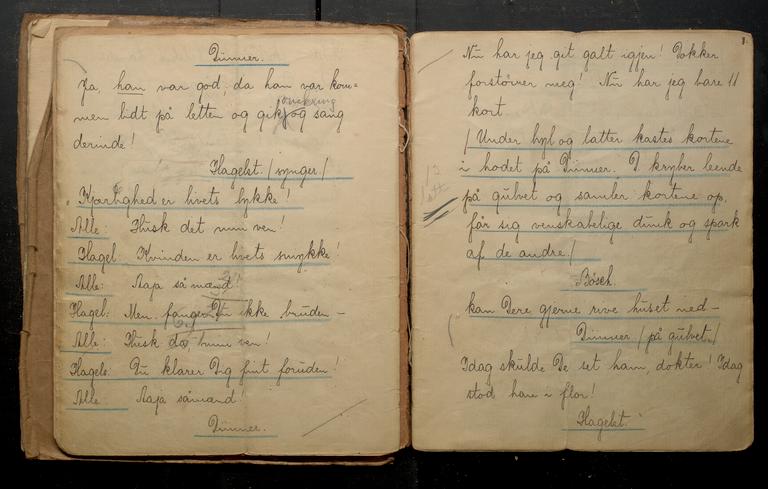 Dinner.
Ja, han var god, da han var kom=
men lidt på letten og gik og sang
omkring
derinde!
Hagelst. /synger./
"Kjærlighed er livets lykke!
Alle: Husk det min ven!
Hagel: Kvinden er livets smykke!
Alle: Aaja såmænd!
Hagel: Men fanger Du ikke bruden –
Alle: Husk da, min ven!
Hagels: Du klarer Dig fint foruden!
Alle: Aaja såmænd!
Dinner.
1.
Nu har jeg git galt igjen! Dokker
forstörrer meg! Nu har jeg bare 11
kort
/Under hyl og latter kastes kortene
i hodet på Dinner. D. kryber leende
på gulvet og samler kortene op,
får sig venskabelige dunk og spark
af de andre./
Bösch.
kan Dere gjerne rive huset ned–
Dinner /på gulvet./
Idag skulde De set ham, dokter! Idag
stod han i flor!
Hagelst.